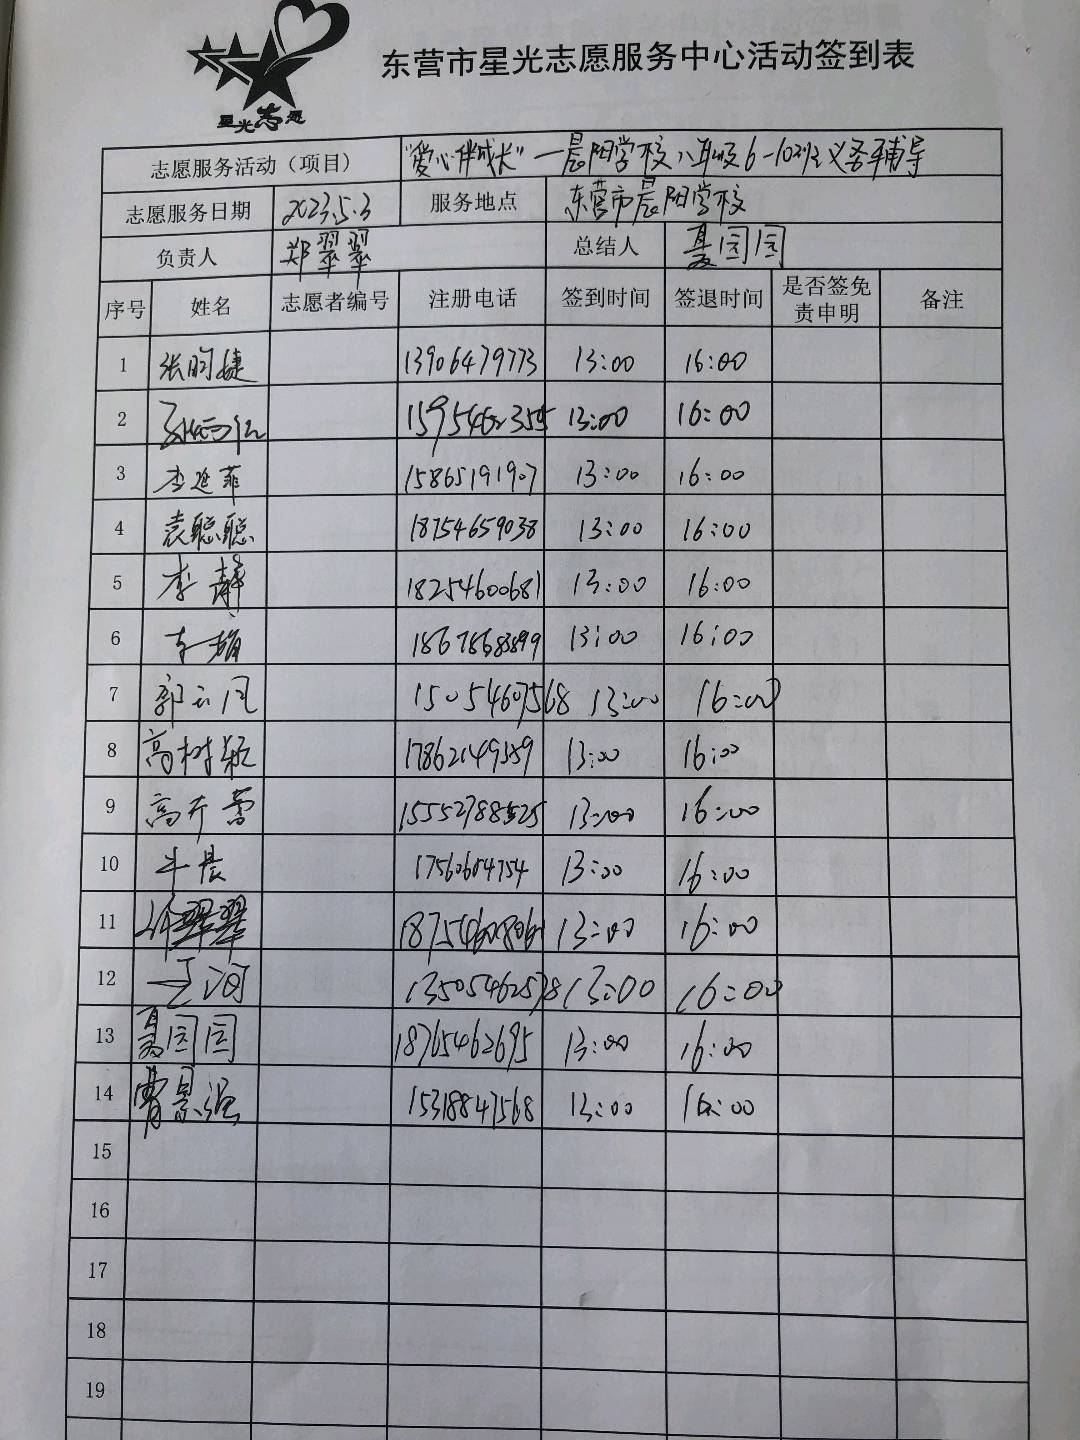 星光志愿
东营市星光志愿服务中心活动签到表
志愿服务活动（项目） "爱心伴成长"—晨阳学校八年级6-10班义务辅导
志愿服务日期 2023.5.3 服务地点 东营市晨阳学校
负责人 郑翠翠 总结人 夏园园
序号 姓名 志愿者编号 注册电话 签到时间 签退时间 是否签免责申明 备注
1 张昀婕 13906479773 13:00 16:00
2 13:00 16:00
3 李延菲 15865191907 13:00 16:00
4 袁聪聪 18754659038 13:00 16:00
5 李静 18254600681 13:00 16:00
6 13:00 16:00
7 郭云凤 15054607568 13:00 16:00
8 高树 17862149559 13:00 16:00
9 高开蕾 15552788525 13:00 16:00
10 牛晨 17560604754 13:00 16:00
11 翠翠 13:00 16:00
12 13:00 16:00
13 夏园园 18765462695 13:00 16:00
14 曹景强 15318847568 13:00 16:00
15
16
17
18
19